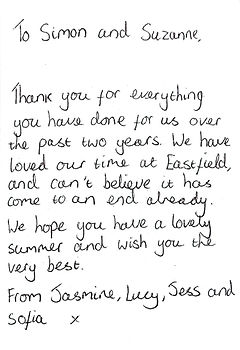 To Simon and Suzanne,
Thank you for everything
you have done for us over
the past two years. We have
loved our time at Eastfield,
and can't believe it has
come to an end already.
We hope you have a lovely
summer and wish you the
very best.
From Jasmine, Lucy, Jess and
Sofia x